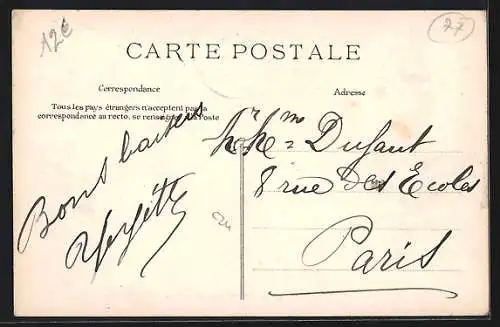 A2€
77
CARTE POSTALE
Correspondance
Adresse
Tous les pays étrangers n'acceptent pas la
correspondance au recto, se renseigner à la Poste
Bons baisers
Mr & Mme Dufaut
8 rue des Ecoles
Paris